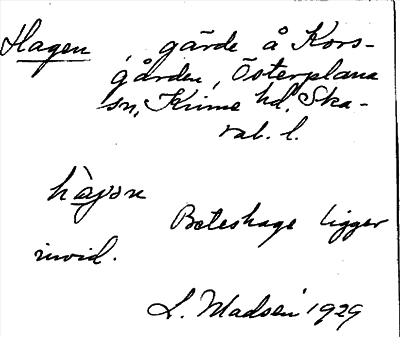 Hagen, gärde å Kors-
gården, Österplana
sn, Kinne hd, Ska-
rab. l.
hàgɔn
Beteshage ligger
invid.
L. Madsen 1929